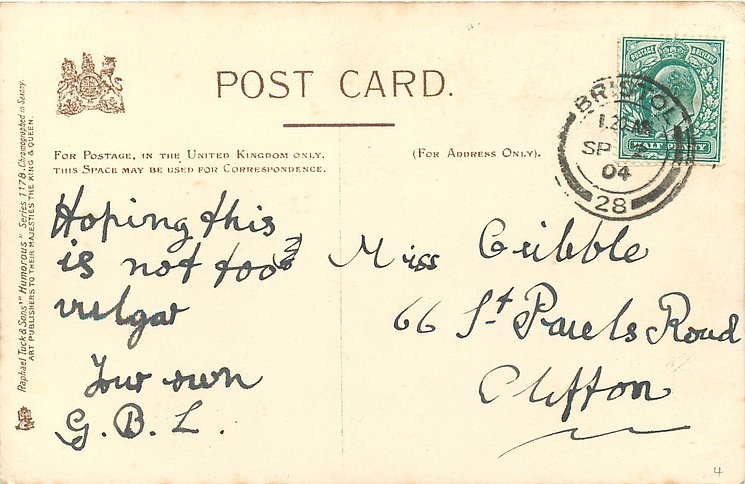 POST CARD.
FOR POSTAGE, IN THE UNITED KINGDOM ONLY,
THIS SPACE MAY BE USED FOR CORRESPONDENCE.
(FOR ADDRESS ONLY).
POSTAGE & REVENUE
HALFPENNY
BRISTOL
SP 2
04
28
Raphael Tuck & Sons' "Humorous" Series 1178. Chromographed in Saxony.
ART PUBLISHERS TO THEIR MAJESTIES THE KING & QUEEN.
Hoping this
is not too
vulgar
Your own
G. B. L.
Miss Gribble
66 St Pauls Road
Clifton
4